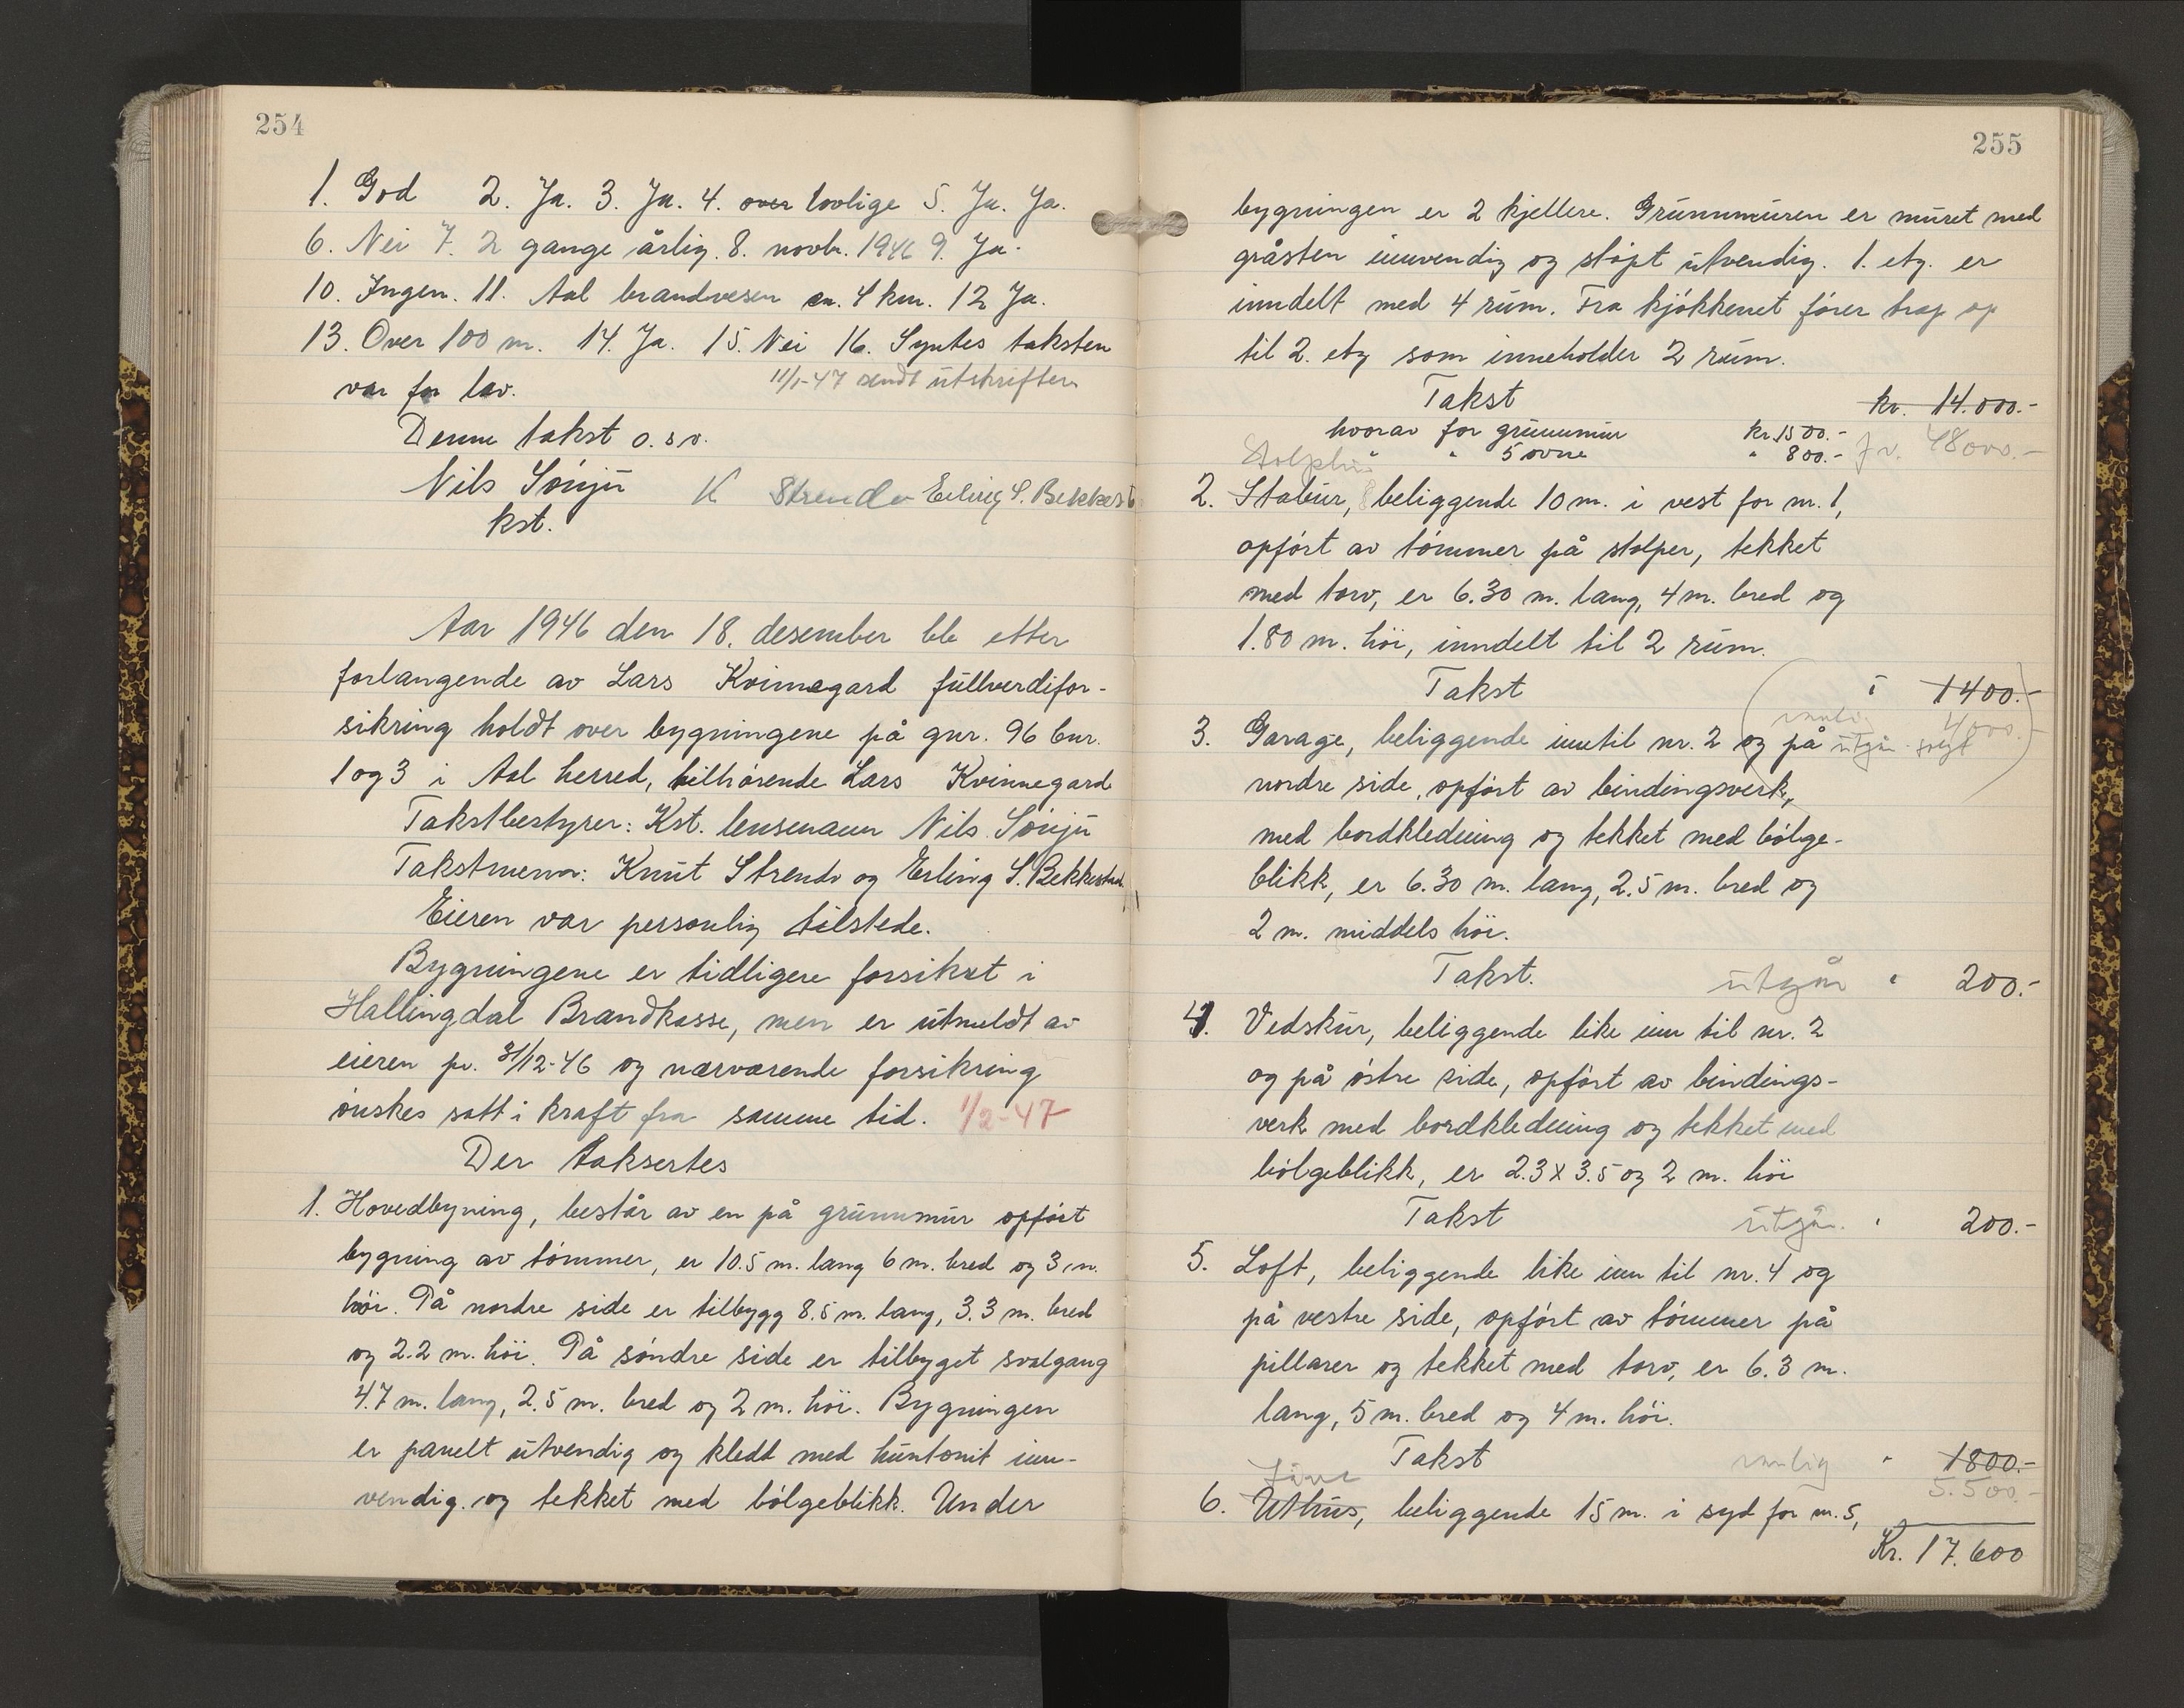 254
1. God 2. Ja. 3. Ja. 4. over lovlige 5. Ja. Ja.
6. Nei 7. 2 gange årlig. 8. novbr. 1946 9. Ja.
10. Ingen. 11. Aal brandvesen ca. 4 km. 12 Ja.
13. Over 100 m. 14. Ja. 15. Nei 16. Syntes taksten
var for lav.
11/1-47 sendt utskriften
Denne takst o.s.v.
Nils Sønju K Strende Erling S. Bekkest
kst.
Aar 1946 den 18. desember ble etter
forlangende av Lars Kvinnegard fullverdifor-
sikring holdt over bygningene på gnr. 96 bnr.
1 og 3 i Aal herred, tilhørende Lars Kvinnegard
Takstbestyrer: Kst. lensmann Nils Sønju
Takstmenn: Knut Strende og Erling S. Bekkestad
Eieren var personlig tilstede.
Bygningene er tidligere forsikret i
Hallingdal Brandkasse, men er utmeldt av
eieren pr. 31/12-46 og nærværende forsikring
ønskes satt i kraft fra samme tid. 1/2-47
Der taksertes
1. Hovedbyning, består av en på grunnmur opført
bygning av tømmer, er 10.5 m. lang 6 m. bred og 3 m.
høi. På nordre side er tilbygg 8.5 m. lang, 3.3 m. bred
og 2.2 m. høi. På søndre side er tilbyget svalgang
4.7 m. lang, 2.5 m. bred og 2 m. høi. Bygningen
er panelt utvendig og kledd med huntonit inn-
vendig. og tekket med bølgeblikk. Under
255
bygningen er 2 kjellere. Grunnmuren er muret med
gråsten innvendig og støpt utvendig. 1. etg. er
inndelt med 4 rum. Fra kjøkkenet fører trap op
til 2. etg som inneholder 2 rum.
Takst kr. 14.000.-
hvorav for grunnmur kr. 1500.-
" " 5 ovne " 800.- 48000.-
2. Stabur, beliggende 10 m. i vest for nr. 1,
opført av tømmer på stolper, tekket
med torv, er 6.30 m. lang, 4 m. bred og
1.80 m. høi, inndelt til 2 rum.
Takst " 1400.-
4000.-
3. Garage, beliggende inntil nr. 2 og på utgår solgt
nordre side, opført av bindingsverk,
med bordkledning og tekket med bølge-
blikk, er 6.30 m. lang, 2.5 m. bred og
2 m. middels høi.
Takst. utgår " 200.-
4. Vedskur, beliggende like inn til nr. 2
og på østre side, opført av bindings-
verk med bordkledning og tekket med
bølgeblikk, er 2.3 x 3.5 og 2 m. høi
Takst utgår " 200.-
5. Loft, beliggende like inn til nr. 4 og
på vestre side, opført av tømmer på
pillarer og tekket med torv, er 6.3 m.
lang, 5 m. bred og 4 m. høi.
Takst " 1800.-
5.500.-
6. Uthus, beliggende 15 m. i syd for nr. 5,
Kr. 17.600